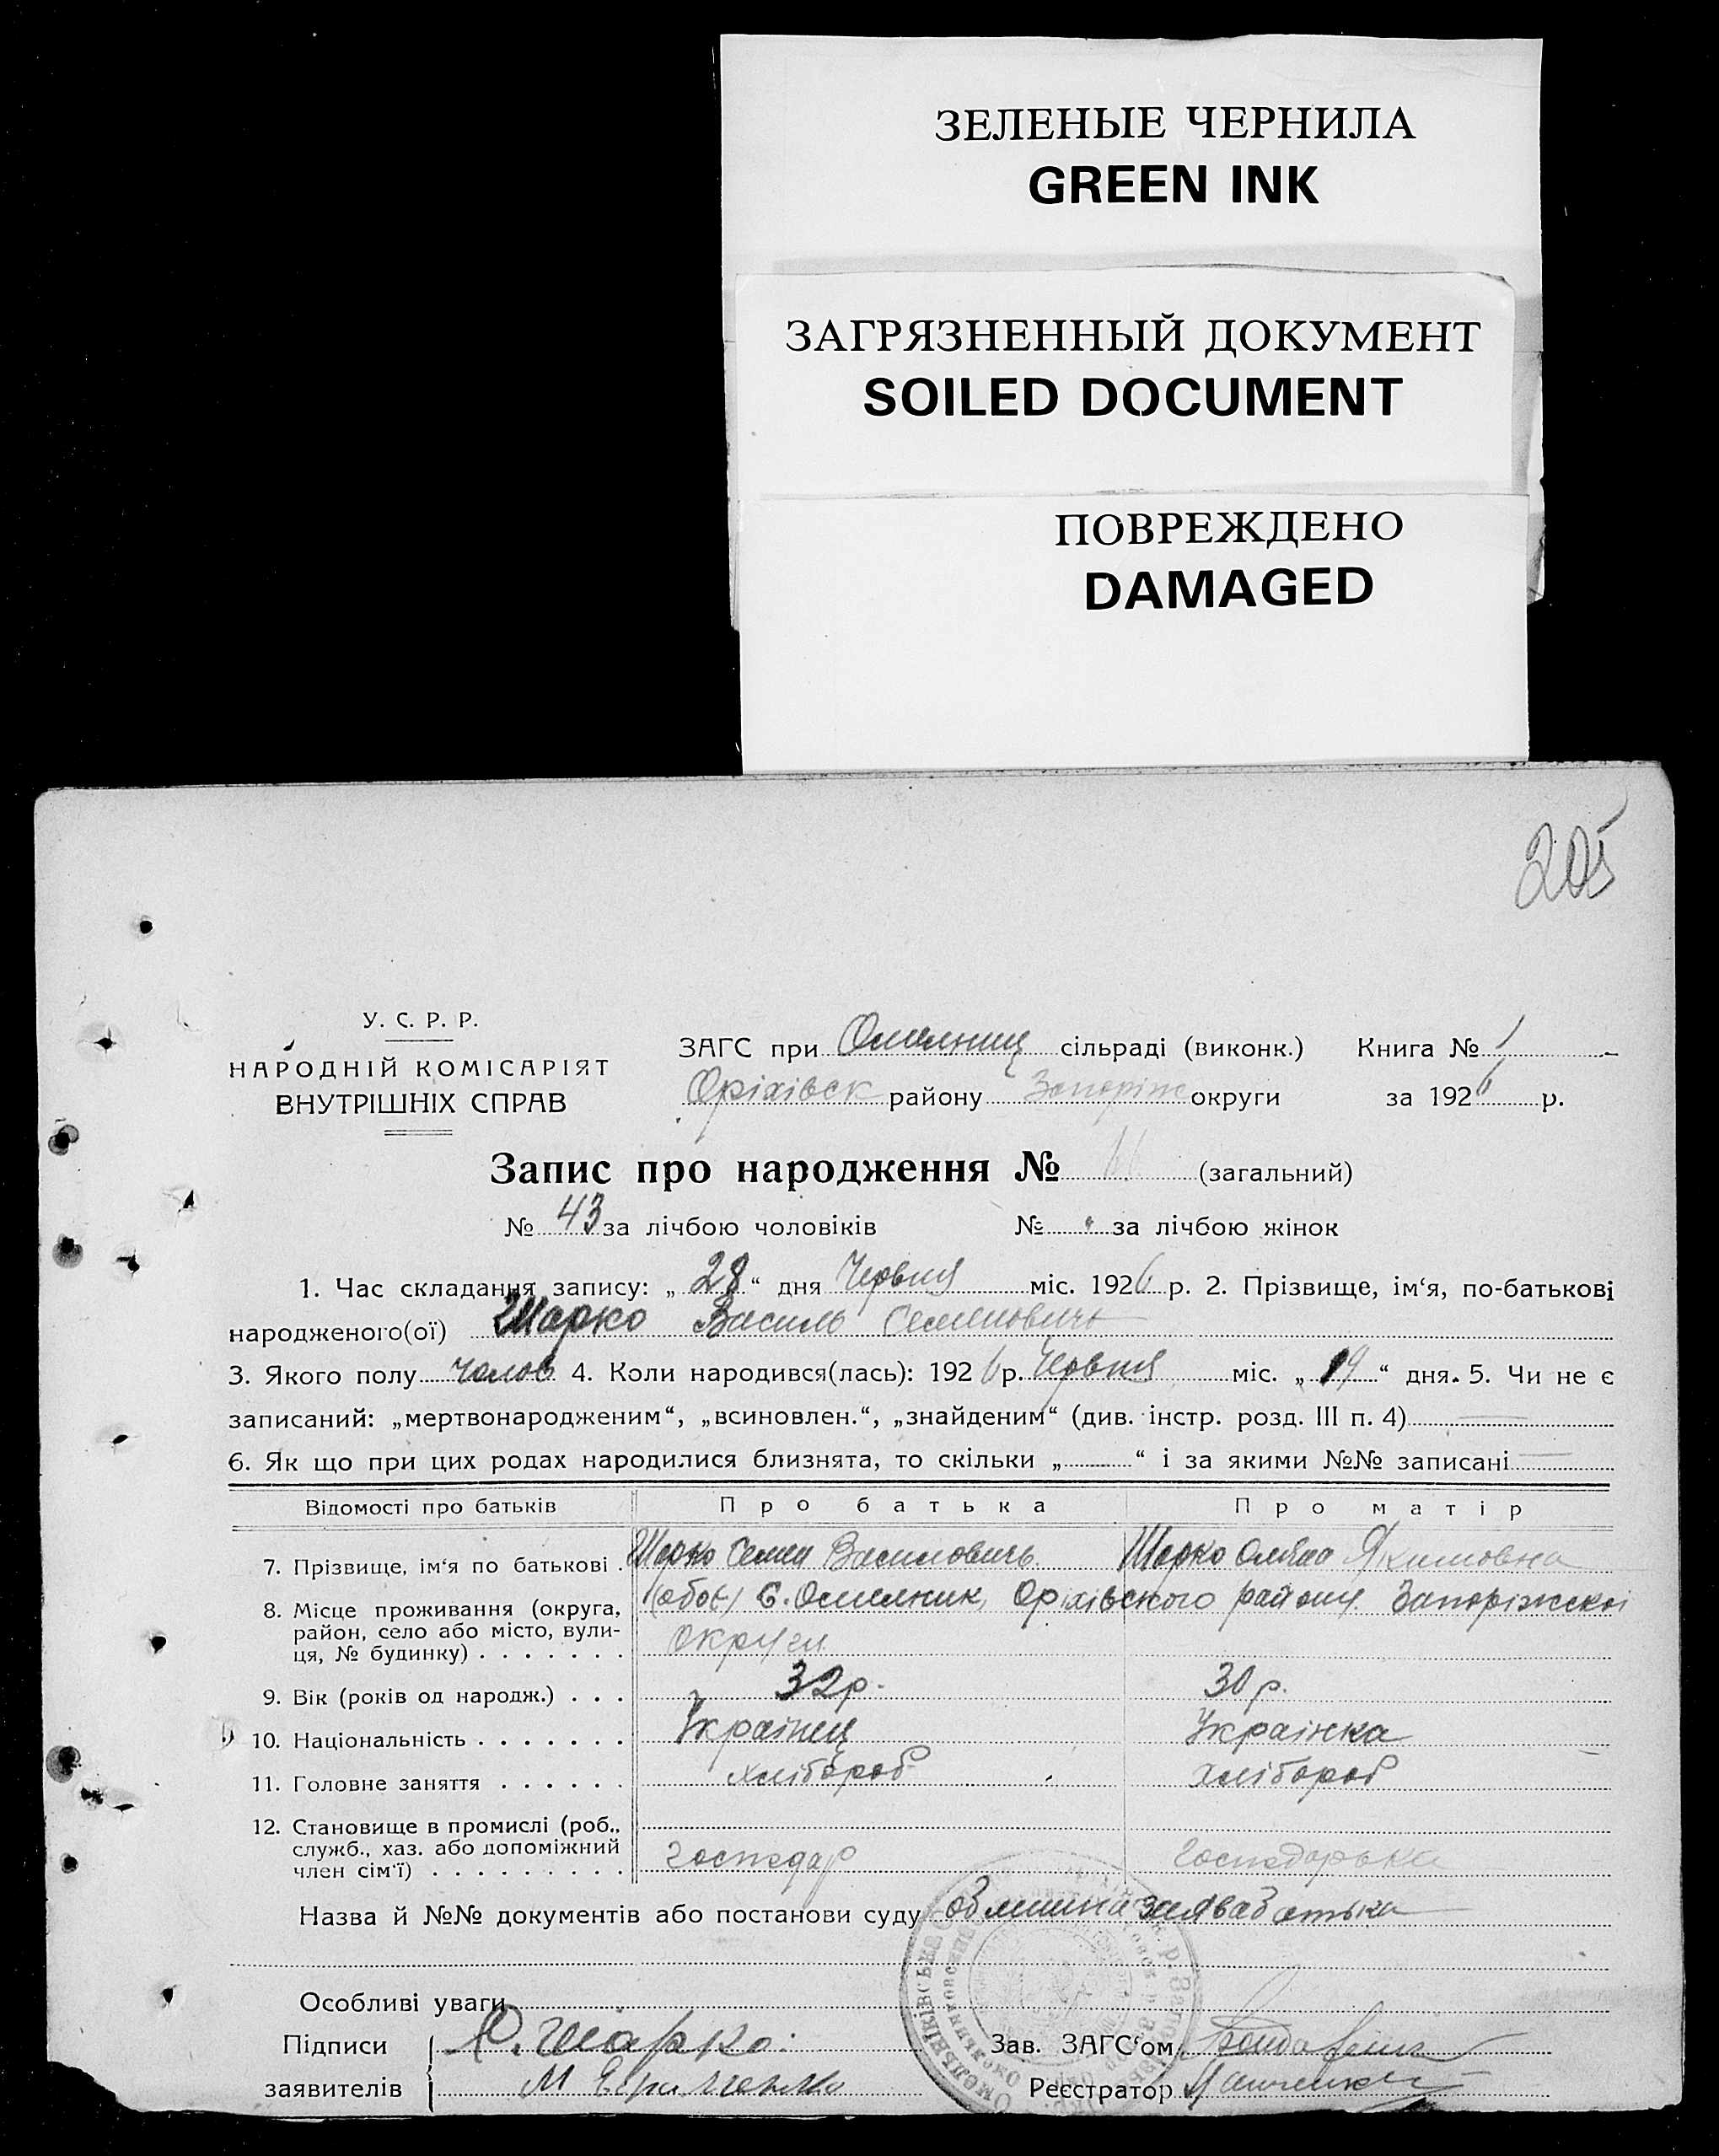 ЗЕЛЕНЫЕ ЧЕРНИЛА
GREEN INK
ЗАГРЯЗНЕННЫЙ ДОКУМЕНТ
SOILED DOCUMENT
ПОВРЕЖДЕНО
DAMAGED
205
У. С. Р. Р.
НАРОДНІЙ КОМІСАРІЯТ
ВНУТРІШНІХ СПРАВ
ЗАГС при Омелниц сільраді (виконк.) Книга № 1
Оріхівск району Запоріж округи за 1926 р.
Запис про народження № (загальний)
№ 43 за лічбою чоловіків № за лічбою жінок
1. Час складання запису: „28“ дня Червня міс. 1926 р. 2. Прізвище, ім‘я, по-батькові
народженого(ої) Шарко Василь Семенович
3. Якого полу Чолов 4. Коли народився(лась): 1926 р. Червня міс. „19“ дня. 5. Чи не є
записаний: „мертвонародженим“, „всиновлен.“, „знайденим“ (див. інстр. розд. III п. 4)
6. Як що при цих родах народилися близнята, то скільки „ “ і за якими №№ записані
Відомості про батьків Про батька Про матір
7. Прізвище, ім‘я по батькові . Шарко Семен Василовичь Шарко Якимовна
8. Місце проживання (округа, район, село або місто, вулиця, № будинку) . . . . . . . (обоє) С. Омелник, Оріхівского району Запоріжскоі
округи
9. Вік (років од народж.) . . . 32 р. 30 р.
10. Національність . . . . . . . Украінец Украінка
11. Головне заняття . . . . . . хлібороб хлібороб
12. Становище в промислі (роб., служб., хаз. або допоміжний член сім‘ї) . . . . . . . . . господар господарька
Назва й №№ документів або постанови суду заява батька
Особливі уваги
Підписи С. Шарко. Зав. ЗАГС‘ом
заявителів М Реєстратор